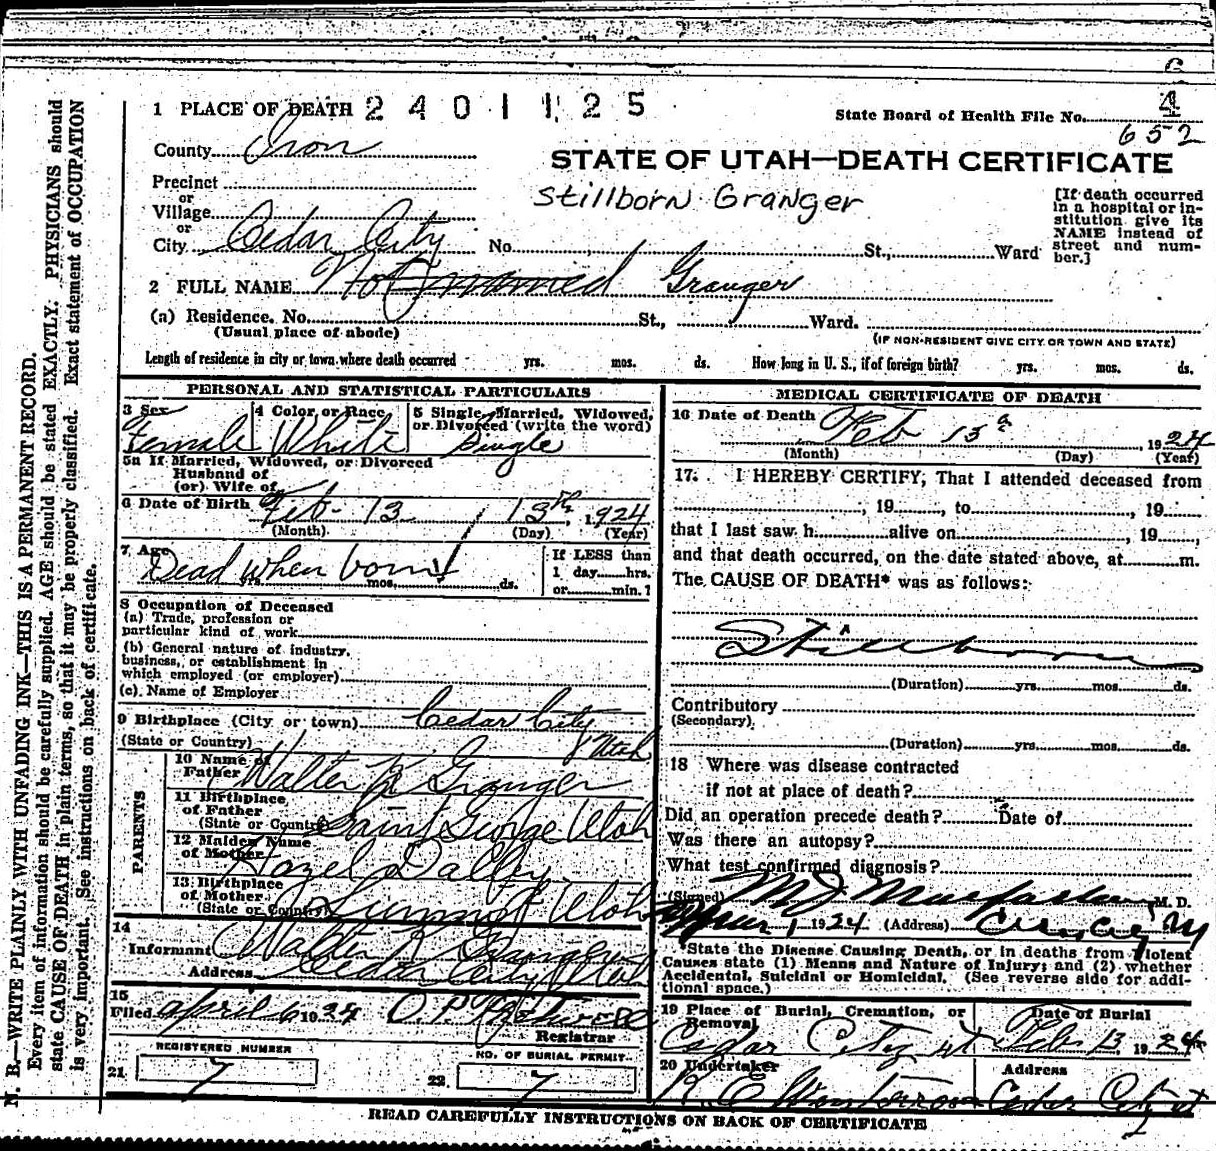 1 PLACE OF DEATH 2401125
State Board of Health File No. 4
652
County Iron
STATE OF UTAH—DEATH CERTIFICATE
Stillborn Granger
Precinct
or
Village
or
City Cedar City No. St., Ward
[If death occurred in a hospital or in-stitution give its NAME instead of street and num-ber.]
2 FULL NAME Not named Granger
(a) Residence. No. St., Ward.
(Usual place of abode) (IF NON-RESIDENT GIVE CITY OR TOWN AND STATE)
Length of residence in city or town where death occurred yrs. mos. ds. How long in U. S., if of foreign birth? yrs. mos. ds.
PERSONAL AND STATISTICAL PARTICULARS
3 Sex 4 Color or Race 5 Single, Married, Widowed,
or Divorced (write the word)
Female White Single
5a If Married, Widowed, or Divorced
Husband of
(or) Wife of
6 Date of Birth Feb. 13 13th, 1924
(Month) (Day) (Year)
7 Age If LESS than
Dead when born 1 day hrs.
yrs. mos. ds. or min. ?
8 Occupation of Deceased
(a) Trade, profession or
particular kind of work
(b) General nature of industry,
business, or establishment in
which employed (or employer)
(c) Name of Employer
9 Birthplace (City or town) Cedar City
(State or Country) Utah
PARENTS
10 Name of
Father Walter K Granger
11 Birthplace
of Father
(State or Country) Saint George Utah
12 Maiden Name
of Mother Hazel Dalley
13 Birthplace
of Mother
(State or Country) Summit Utah
14
Informant Walter K Granger
Address Cedar City Utah
15
Filed April 6 1924
Registrar
REGISTERED NUMBER NO. OF BURIAL PERMIT
21 7 22 7
MEDICAL CERTIFICATE OF DEATH
16 Date of Death Feb 13th 1924
(Month) (Day) (Year)
17. I HEREBY CERTIFY, That I attended deceased from
, 19 , to , 19
that I last saw h alive on , 19 ,
and that death occurred, on the date stated above, at m.
The CAUSE OF DEATH* was as follows:
Stillborn
(Duration) yrs. mos. ds.
Contributory
(Secondary)
(Duration) yrs. mos. ds.
18 Where was disease contracted
if not at place of death?
Did an operation precede death? Date of
Was there an autopsy?
What test confirmed diagnosis?
(Signed) M J Macfarlane, M. D.
, 1924 (Address)
*State the Disease Causing Death, or in deaths from Violent
Causes state (1) Means and Nature of Injury; and (2) whether
Accidental, Suicidal or Homicidal. (See reverse side for addi-
tional space.)
19 Place of Burial, Cremation, or Date of Burial
Removal
Cedar City Ut Feb 13 1924
20 Undertaker Address
Cedar City Ut
READ CAREFULLY INSTRUCTIONS ON BACK OF CERTIFICATE
N. B.—WRITE PLAINLY WITH UNFADING INK—THIS IS A PERMANENT RECORD.
Every item of information should be carefully supplied. AGE should be stated EXACTLY. PHYSICIANS should
state CAUSE OF DEATH in plain terms, so that it may be properly classified. Exact statement of OCCUPATION
is very important. See instructions on back of certificate.